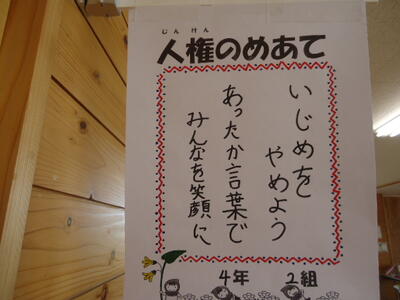 じんけん
人権のめあて
いじめを
やめよう
あったか言葉で
みんなを笑顔に
4年 2組